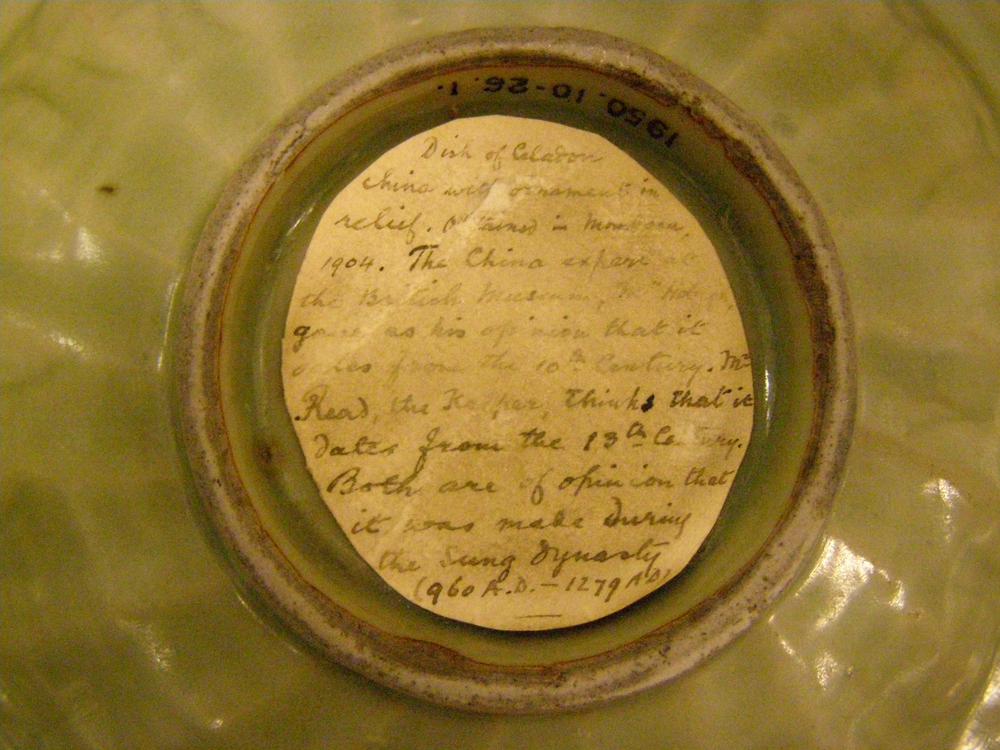 1950. 10-26. 1.
Dish of Celadon
China with ornament in
relief. Obtained in
1904. The China expert at
the British Museum, Mr
gave as his opinion that it
dates from the 10th Century. Mr
Read, the Keeper, thinks that it
dates from the 13th Century.
Both are of opinion that
it was made during
the Sung dynasty
(960 A.D. - 1279 A.D)